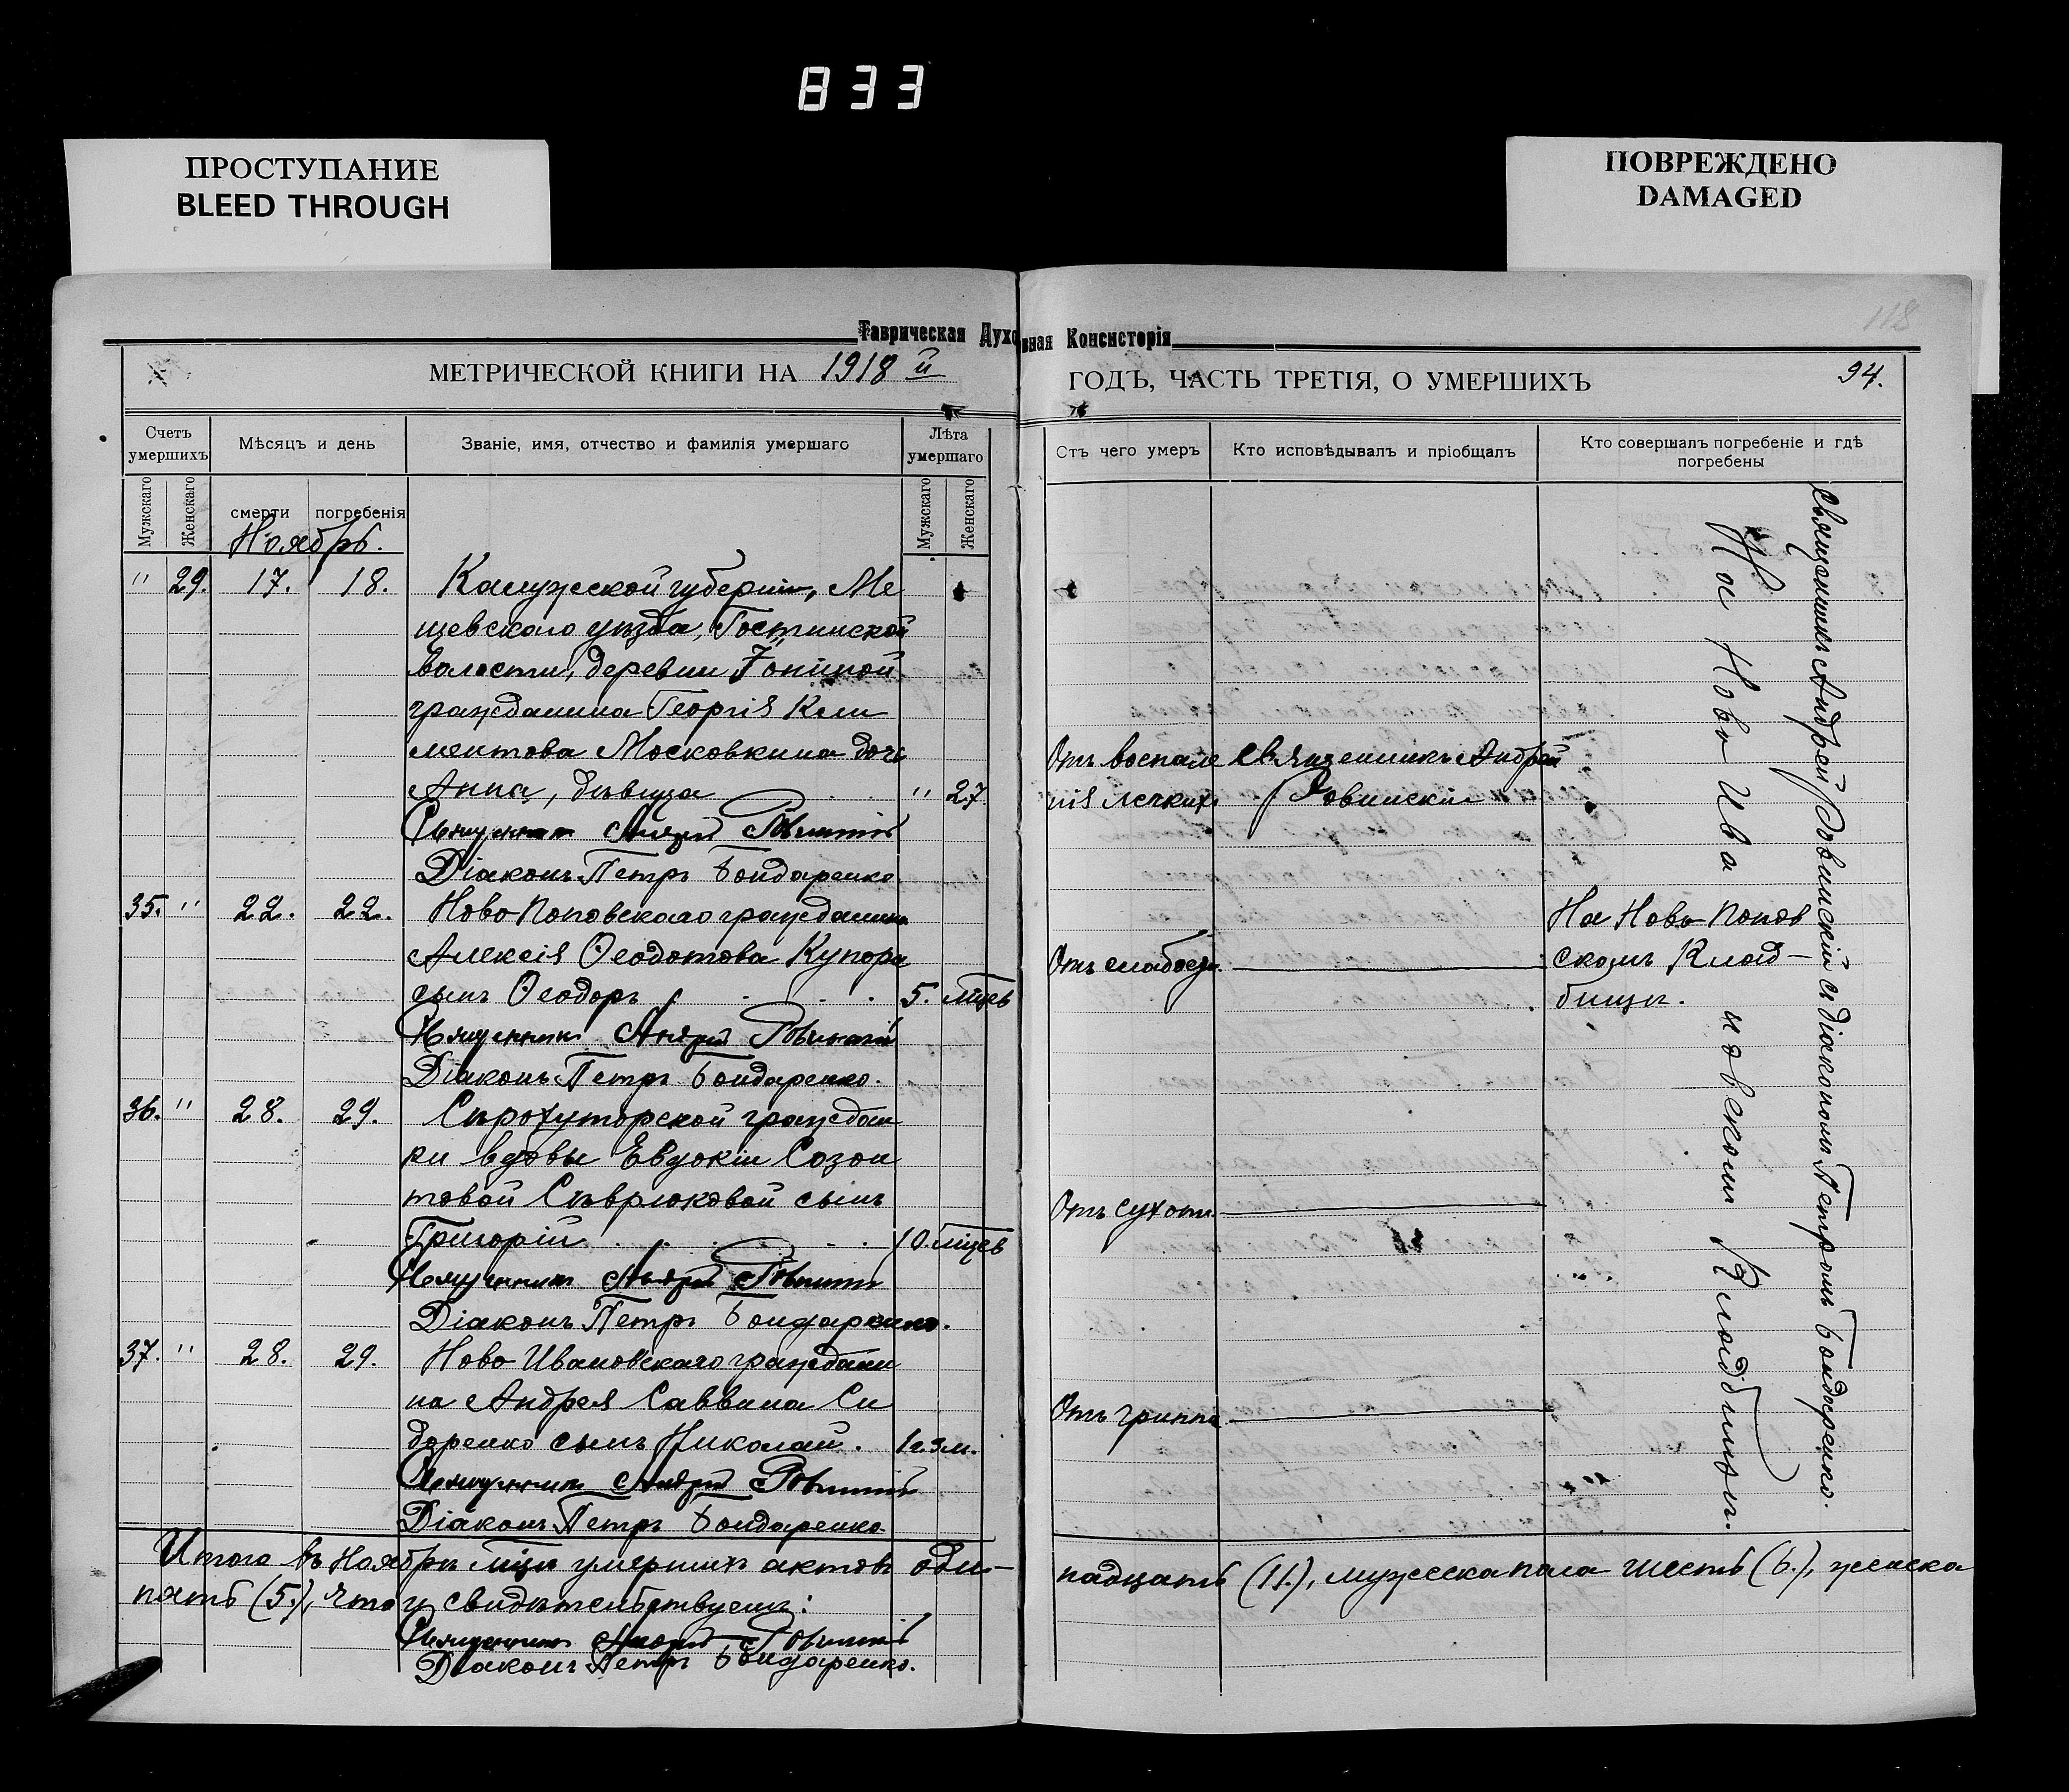 833
ПРОСТУПАНИЕ
BLEED THROUGH
ПОВРЕЖДЕНО
DAMAGED
118
Таврическая Духовная Консисторія
МЕТРИЧЕСКОЙ КНИГИ НА 1918 й
ГОДЪ, ЧАСТЬ ТРЕТІЯ, О УМЕРШИХЪ
94.
Счетъ умершихъ
Мѣсяцъ и день
Званіе, имя, отчество и фамилія умершаго
Лѣта умершаго
Отъ чего умеръ
Кто исповѣдывалъ и пріобщалъ
Кто совершалъ погребеніе и гдѣ погребены
Мужскаго
Женскаго
смерти
погребенія
Мужскаго
Женскаго
Ноябрь.
" 29. 17. 18. Калужской губерніи, Ме
щевскаго уѣзда, Гостинской
волости, деревни
гражданина Георгія Кли
ментова Московкина дочь
Анна, дѣвица " 27
Отъ воспале
нія легкихъ
Священникъ Андрей
Ровинскій
Священникъ Андрей Ровинскій
Діаконъ Петръ Бондаренко
35. " 22. 22. Ново Поповскаго гражданина
Алексія Ѳеодотова Купора
сынъ Ѳеодоръ 5. мцев
Отъ слабости.
На Ново Попов
скомъ Клад-
бищѣ.
Священникъ Андрей Ровинскій
Діаконъ Петръ Бондаренко.
36. " 28. 29. Сѣрохуторской граждан
ки вдовы Евдокіи Созон
товой Сѣврюковой сынъ
Григорій 10. мцев
Отъ сухот.
Священникъ Андрей Ровинскій
Діаконъ Петръ Бондаренко.
37. " 28. 29. Ново Ивановскаго граждани
на Андрея Саввина Си
доренко сынъ Николай. 1 г. 3 м.
Отъ гриппа
Священникъ Андрей Ровинскій
Діаконъ Петръ Бондаренко
На Ново Ива новскомъ Кладбищѣ.
Священникъ Андрей Ровинскій съ діакономъ Петромъ Бондаренко.
Итого въ Ноябрѣ мцѣ умершихъ актовъ оди-
надцать (11.), мужеска пола шесть (6.), женска
пять (5.), что и свидѣтельствуемъ:
Священникъ Андрей Ровинскій
Діаконъ Петръ Бондаренко.